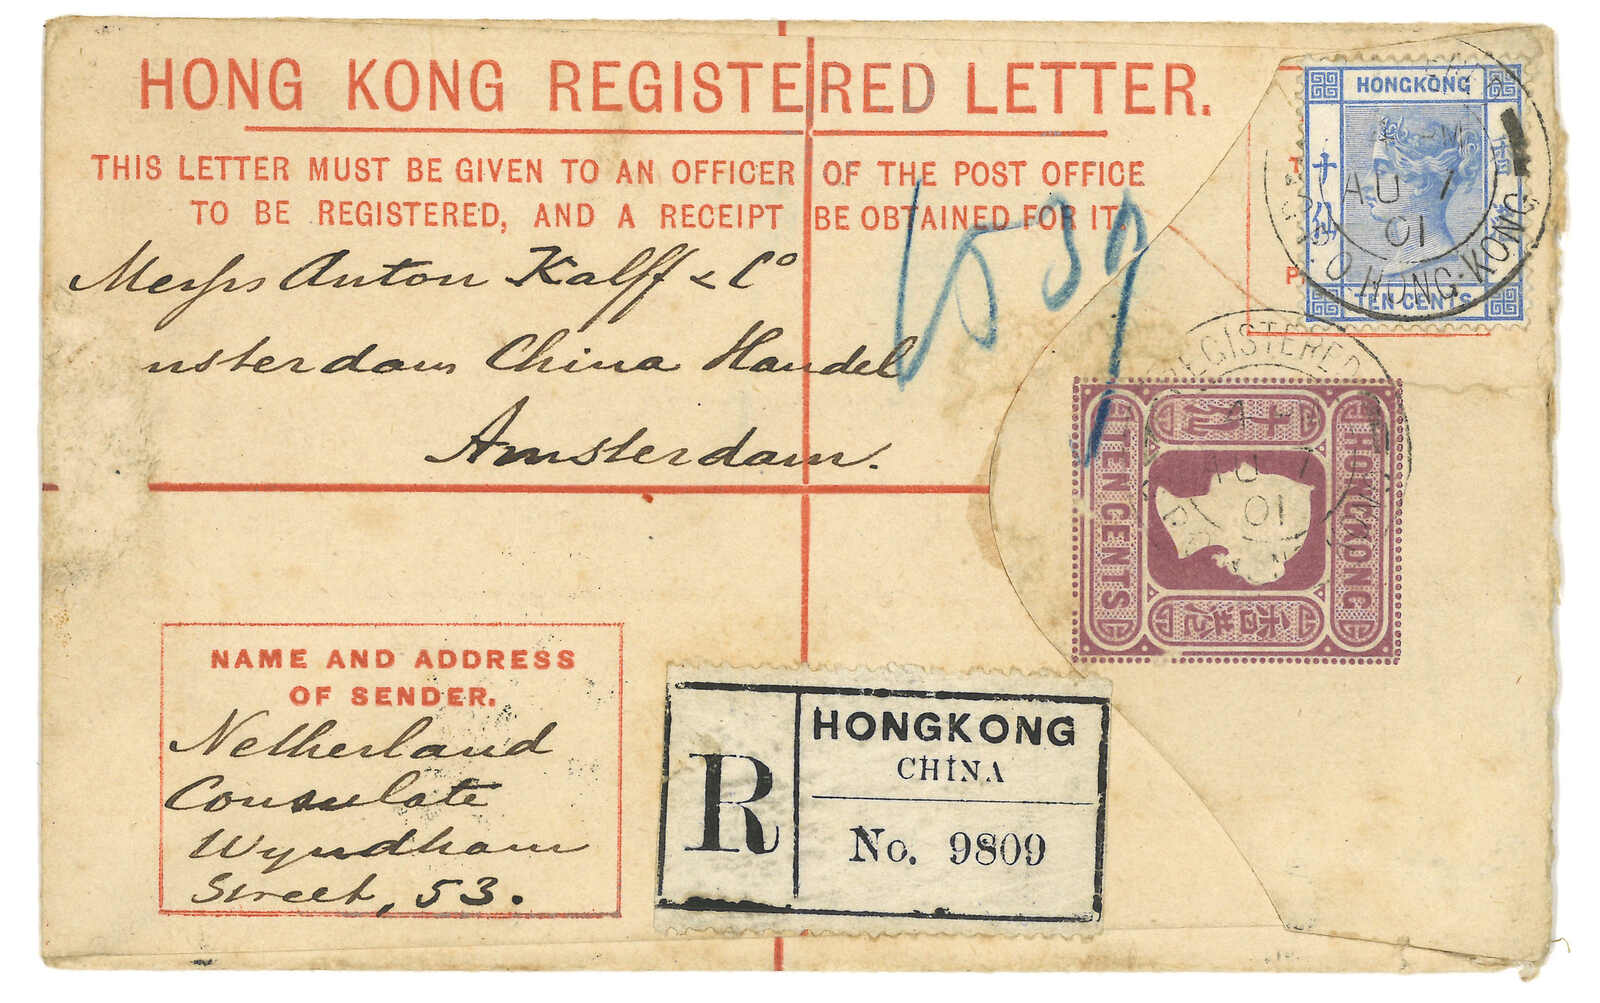 HONG KONG REGISTERED LETTER.
THIS LETTER MUST BE GIVEN TO AN OFFICER OF THE POST OFFICE
TO BE REGISTERED, AND A RECEIPT BE OBTAINED FOR IT.
Messrs Anton Kalff & Co
msterdam China Handel
Amsterdam.
NAME AND ADDRESS
OF SENDER.
Netherland
Consulate
Wyndham
Street, 53.
R
HONGKONG
CHINA
No. 9809
HONGKONG
TEN CENTS
AU 1
01
HONG-KONG
REGISTERED
AU 1
01
HONGKONG
TEN CENTS